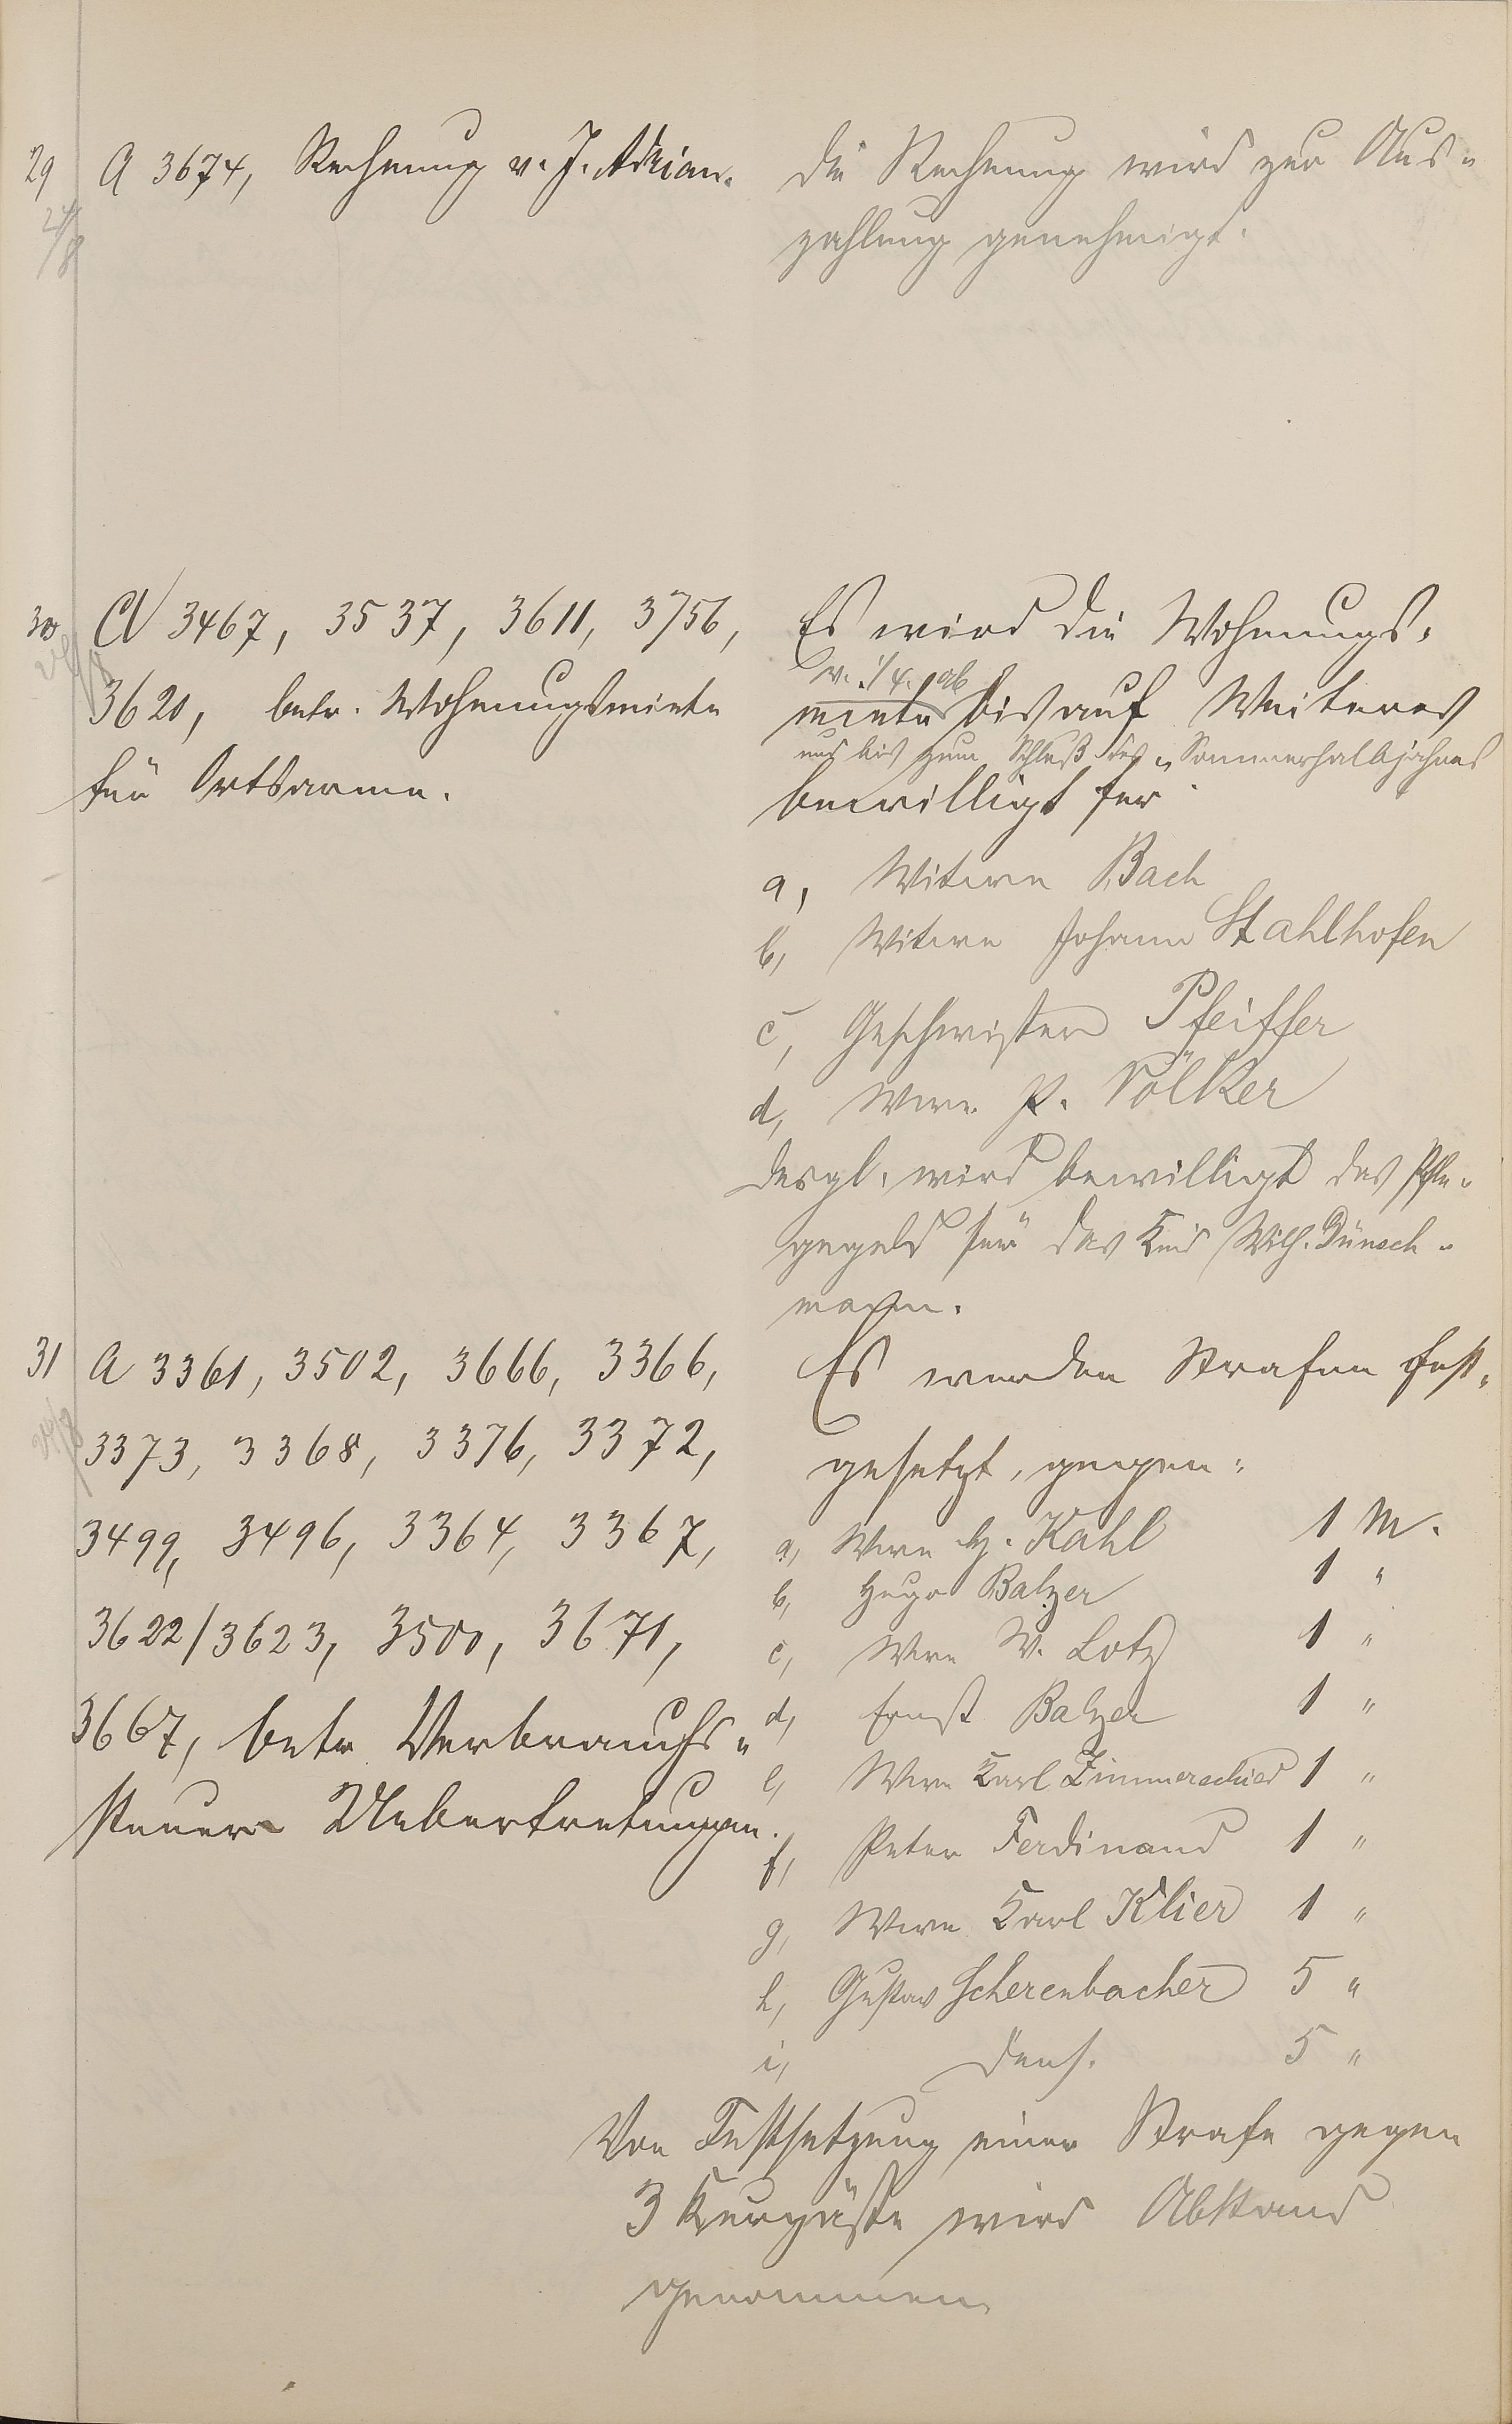 29
24/8
A 3674, Rechnung v. J. Adrian.
Die Rechnung wird zur Aus-
zahlung genehmigt.
30
A 3467, 3537, 3611, 3756,
3620, betr. Wohnungsmiete
für Ortsarme.
Es wird die Wohnungs-
v. 1/4. ab
miete bis auf Weiteres
und bis zum Schluß des Sommerhalbjahres
bewilligt für
a, Witwe Bach
b, Witwe Johann Stahlhofen
c, Geschwister Pfeiffer
d, Wwe. P. Völker
desgl. wird bewilligt das Pfle-
gegeld für das Kind Wilh. Dünsch-
mann.
31
24/8
A 3361, 3502, 3666, 3366,
3373, 3368, 3376, 3372,
3499, 3496, 3364, 3367,
3622/3623, 3500, 3671,
3667, betr Verbrauchs-
steuer Uebertretungen.
Es werden Strafen fest-
gesetzt, gegen:
a, Wwe H. Kahl 1 M.
b, Hugo Balzer 1 "
c, Wwe W. Lotz 1 "
d, Ernst Balzer 1 "
e, Wwe Karl Zimmerschied 1 "
f, Peter Ferdinand 1 "
g, Wwe Karl Klier 1 "
h, Gustav Scherenbacher 5 "
i, dens. 5 "
Von Festsetzung einer Strafe gegen
3 Kurgäste wird Abstand
genommen